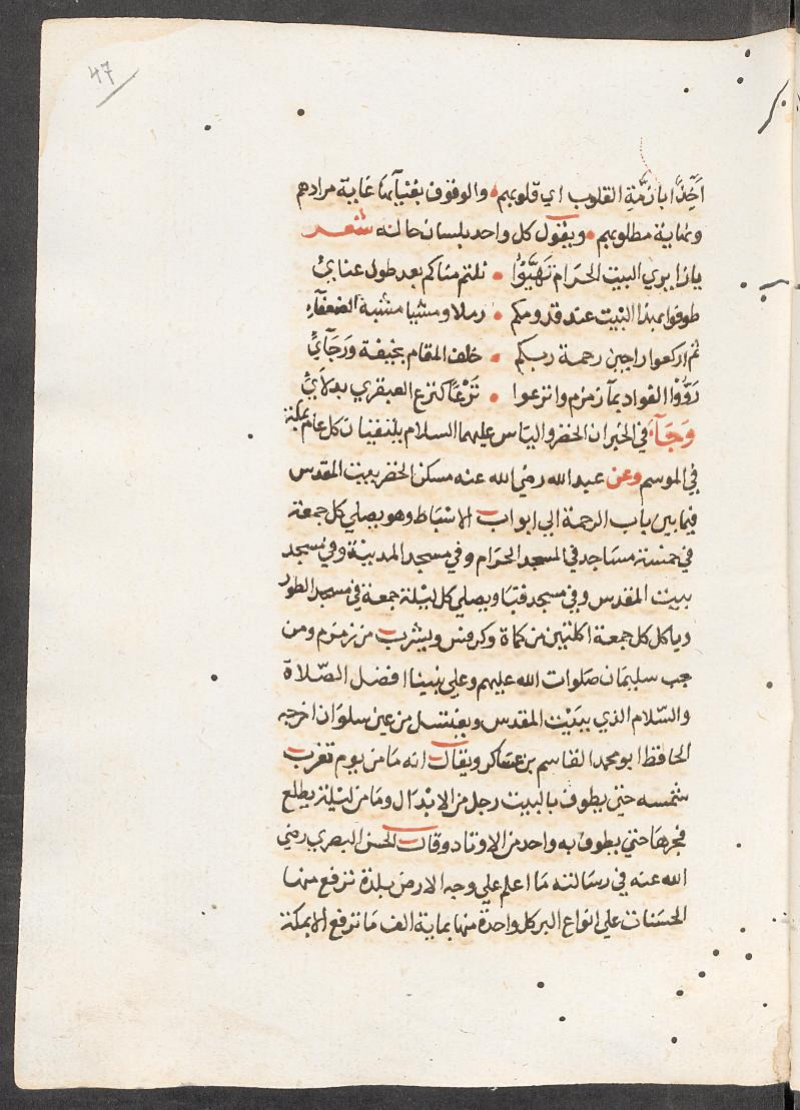 47
آخذًا بأزمّة القلوب اي قلوبهم • والوقوف بفنيآئها غاية مرادهم
ونهاية مطلوبهم • ويقول كل واحد بلسان حاله شعر
يازايري البيت الحرام تهيّؤا • نلتم مناكم بعد طول عنائي
طوفوا بهذا البيت عند قدومكم • رملا ومشيا مشية الضعفآء
ثم اركعوا راجين رحمة ربكم • خلف المقام بخيفة ورجآئي
روّوا الفواد بمآ زمزم وانزعوا • نزعًا كنزع العبقري بدلآئي
وجآء في الخبر ان الخضر والياس عليهما السلام يلتقيان كل عام بمكة
في الموسم وعن عبد الله رضي الله عنه مسكن الخضر ببيت المقدس
فيما بين باب الرحمة الي ابواب الاسباط وهو يصلي كل جمعة
في خمسة مساجد في المسجد الحرام وفي مسجد المدينة وفي مسجد
بيت المقدس وفي مسجد قبا ويصلي كل ليلة جمعة في مسجد الطور
وياكل كل جمعة اكلتين من كماة وكرفس ويشرب من زمزم ومن
جب سليمان صلوات الله عليهم وعلي نبينا افضل الصّلاة
والسّلام الذي ببيت المقدس ويغتسل من عين سلوان اخرجه
الحافظ ابو محمد القاسم بن عساكر ويقال انه ما من يوم تغرب
شمسه حتي يطوف بالبيت رجل من الابدال وما من ليلة يطلع
فجرها حتي يطوف به واحد من الاوتاد وقال الحسن البصري رضي
الله عنه في رسالته ما اعلم علي وجه الارض بلدة ترفع منها
الحسنات علي انواع البر كل واحدة منها بماية الف ما ترفع الا بمكة